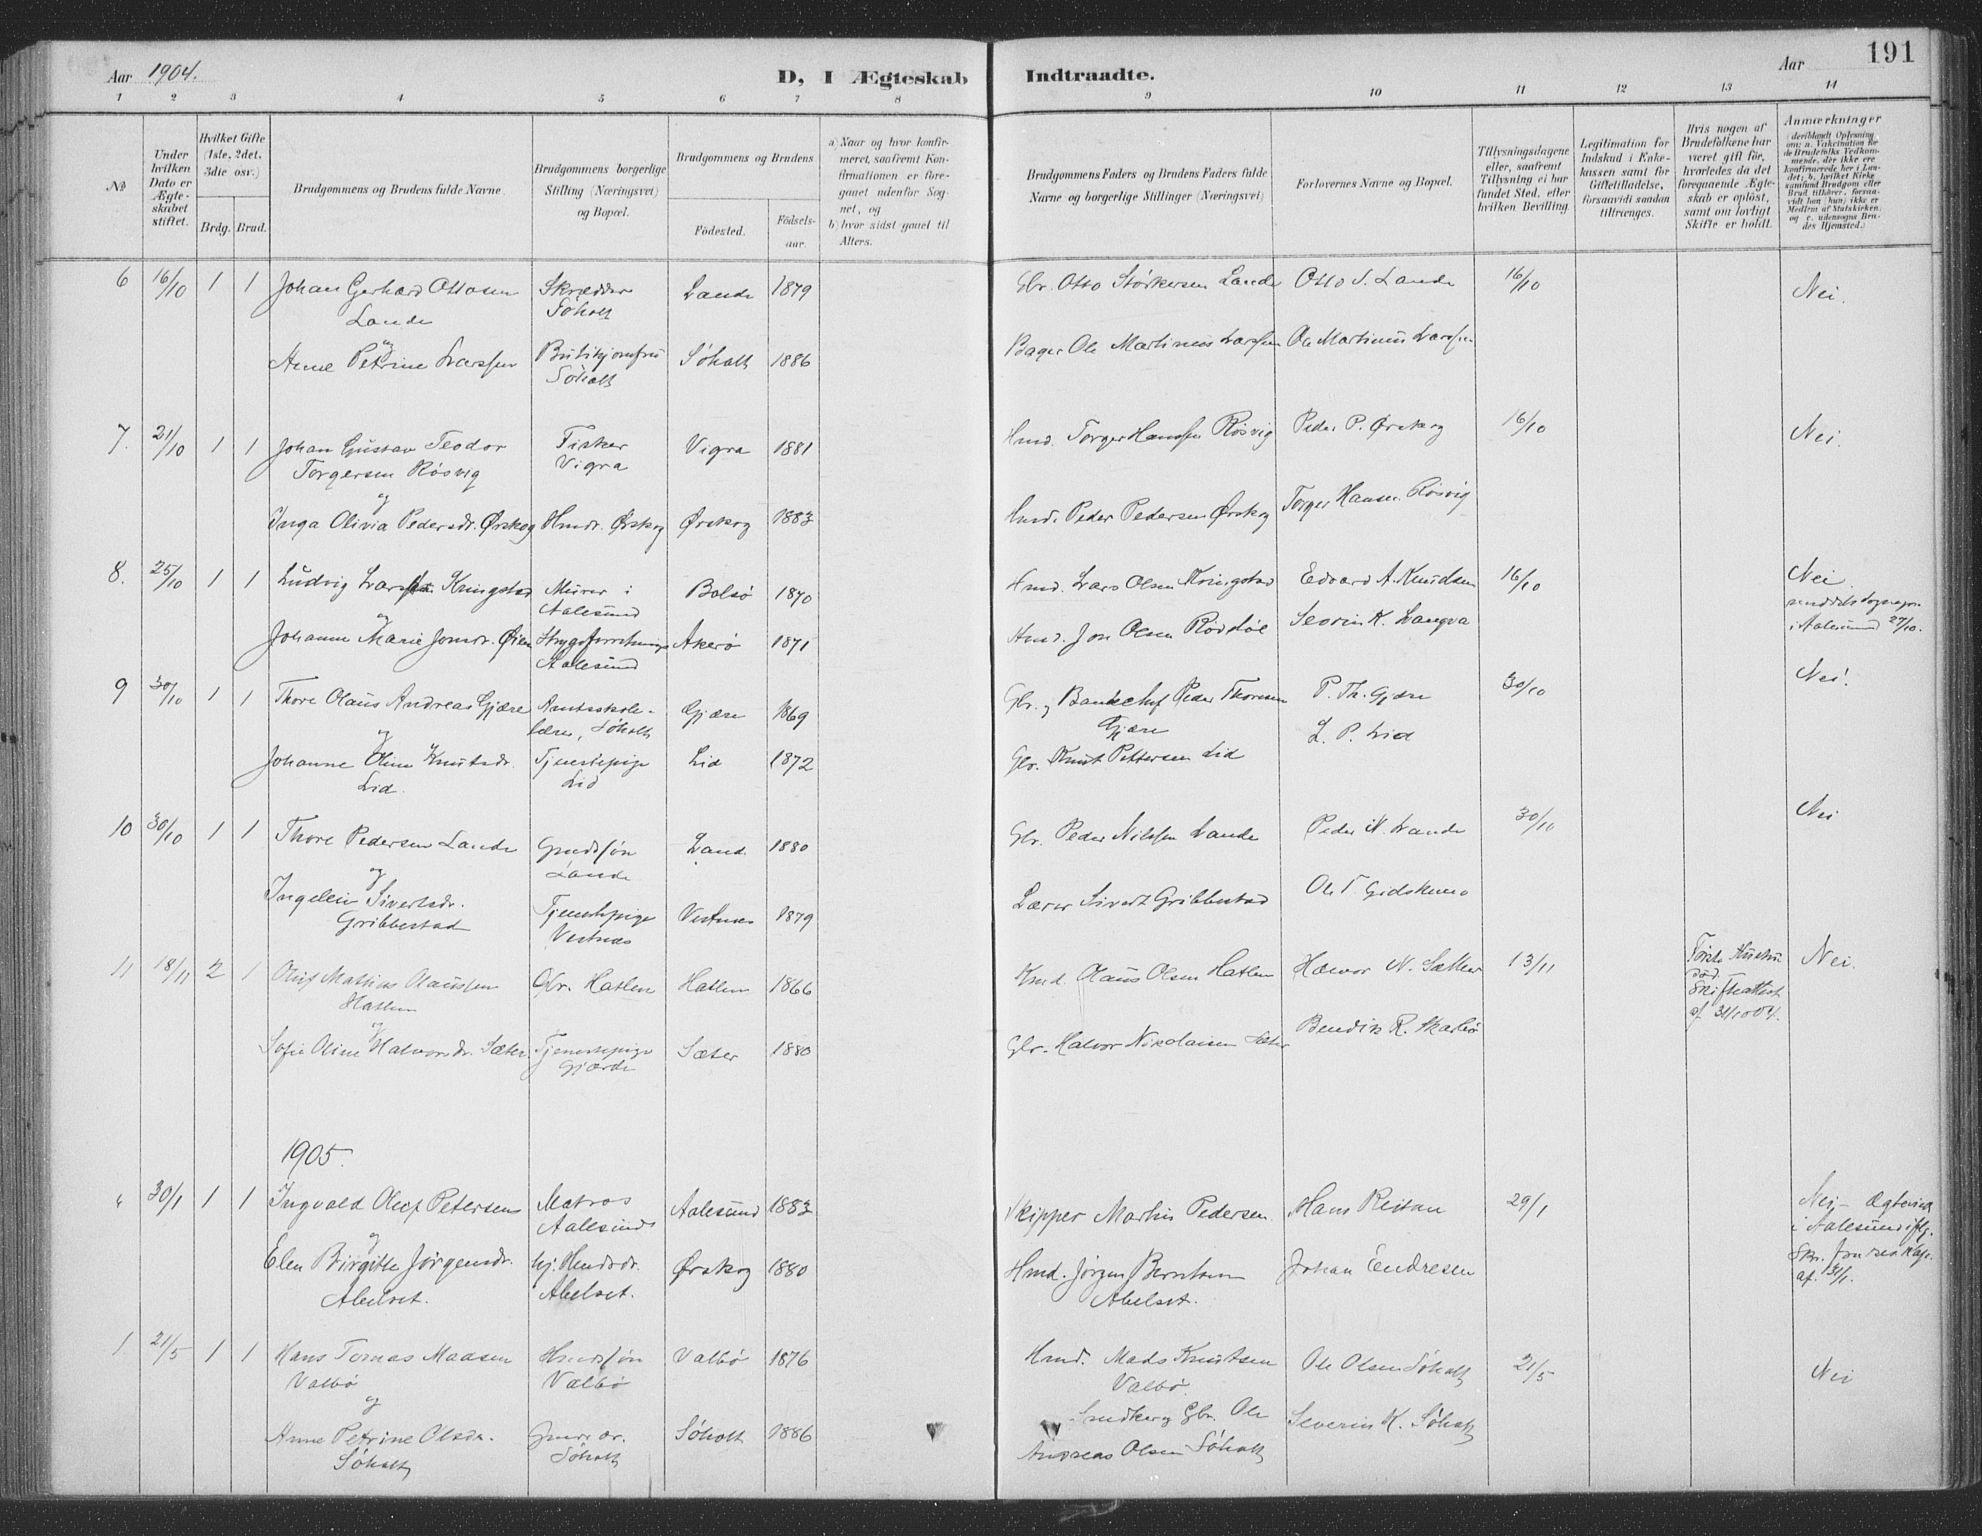 Aar 1904.
D, I Ægteskab
Indtraadte.
Aar
191
1 2 3 4 5 6 7 8 9 10 11 12 13 14
No
Under hvilken Dato er Ægteskabet stiftet.
Hvilket Gifte (1ste, 2det, 3die osv.)
Brdg. Brud.
Brudgommens og Brudens fulde Navne.
Brudgommens borgerlige Stilling (Næringsvei) og Bopæl.
Brudgommens og Brudens
Födested.
Födsels-aar.
a) Naar og hvor konfirmeret, saafremt Konfirmationen er foregaaet udenfor Sognet, og
b) hvor sidst gaaet til Alters.
Brudgommens Faders og Brudens Faders fulde Navne og borgerlige Stillinger (Næringsvei)
Forlovernes Navne og Bopæl.
Tillysningsdagene eller, saafremt Tillysning ei har fundet Sted, efter hvilken Bevilling.
Legitimation for Indskud i Enkekassen samt for Giftetilladelse, forsaavidt saadan tiltrænges.
Hvis nogen af Brudefolkene har været gift för, hvorledes da det foregaaende Ægteskab er oplöst, samt om lovligt Skifte er holdt.
Anmærkninger
(deriblandt Oplysning om: a. Vakcination for de Brudefolks Vedkommende, der ikke ere konfirmerede her i Landet; b. hvilket Kirkesamfund Brudgom eller Brud tilhörer, forsaavidt han (hun) ikke er Medlem af Statskirken, og c. udensogns Brudes Hjemsted.)
6 16/10 1 1 Johan Gerhard Ottosen Skrædder Lande 1879 Gbr. Otto Störkersen Lande Otto S. Lande 16/10 Nei.
Lande Söholt
og
Anne Petrine Larssen Butikjomfru Söholt 1886 Bager Ole Martinus Larssen Ole Martinus Larssen
Söholt
7. 21/10 1 1 Johan Gustav Teodor Fisker Vigra 1881 Hmd. Torger Hanssen Rösvig Peder P. Ørskog 16/10 Nei.
Torgersen Rösvig Vigra
og
Inga Olivia Pedersdr. Ørskog Hmdr. Ørskog Ørskog 1883 Hmd. Peder Pedersen Ørskog Torger Hansen Rösvig
8. 25/10 1 1 Ludvig Larssen Kringstad Murer i Bolsö 1870 Hmd. Lars Olsen Kringstad Edvard A. Knudsen 16/10 Nei.
Aalesund
og i Aalesund 27/10.
Johanne Marie Jonsdr. Øien Akerö 1871 Hmd. Jon Olsen Rödstöl Severin K. Langva
Aalesund
9 30/10 1 1 Thore Olaus Andreas Gjære Amtsskole- Gjære 1869 Gbr. og Bankchef Peder Thoresen P. Th. Gjære 30/10 Nei.
lærer, Söholt Gjære
og
Johanne Oline Knutsdr. Tjenestepige Lid 1872 Gbr. Knut Pettersen Lid L. P. Lid
Lid. Lid
10 30/10 1 1 Thore Pedersen Lande Gmdssön Land. 1880 Gbr. Peder Nilssen Lande Peder N. Lande 30/10 Nei
Lande
og
Ingelein Sivertsdr. Tjenestepige Vestnes 1879 Lærer Sivert Gribbestad Ole T. Gidskemo
Gribbestad Vestnes
11 18/11 2 1 Oluf Mathias Olaussen Gbr. Hatlen Hatlen 1866 Kmd. Olaus Olsen Hatlen Halvor N. Sætter 13/11 Første Hustru Nei.
Hatlen død. Skifteattest
og af 31/10 04.
Sofie Oline Halvorsdr. Sæter. Tjenestepige Sæter 1880 Gbr. Halvor Nikolaisen Sæter Bendik R. Skarbö
Gjærde
1905.
" 30/1 1 1 Ingvald Oluf Petersen Matros Aalesund 1883 Skipper Martin Pedersen Hans Reitan 29/1 Nei - Ægteviet
Aalesund i Aalesund iflg.
og Skr. fra res. Kap.
Elen Birgitte Jörgensdr. hj. Hmdsdr. Ørskog 1880 Hmd. Jörgen Berntsen Johan Endresen af 31/1.
Abelset. Abelset. Abelset.
1 21/5 1 1 Hans Tomas Madsen Hmdssön Valbö 1876 Hmd. Mads Knudtsen Ole Olsen Söholt 21/5 Nei
Valbö Valbö Valbö.
og
Anne Petrine Olsdr. Gmdsdr. Söholt 1886 Smed og Gbr. Ole Severin K. Söholt
Söholt Söholt Andreas Olsen Söholt